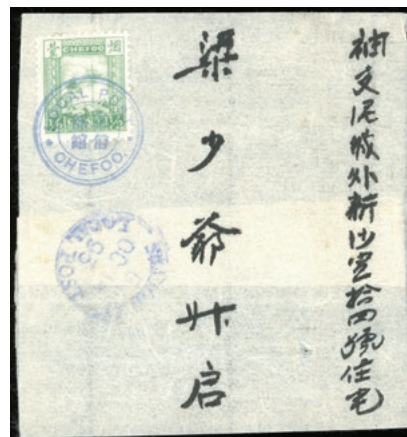 袖交泥城外新沙宣拾四號住宅
梁少爺升启
CHEFOO
LOCAL POST
CHEFOO
LOCAL POST